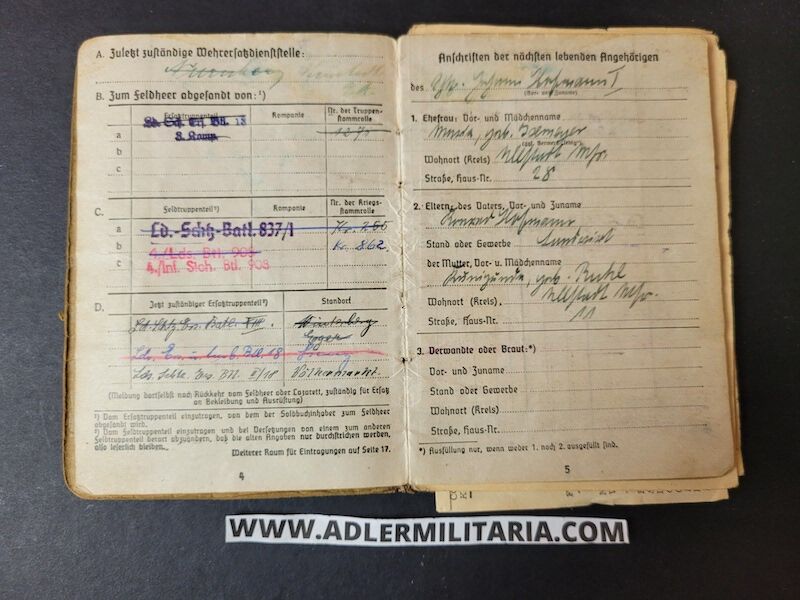 A. Zuletzt zuständige Wehrersatzdienststelle:
Nürnberg
B. Zum Feldheer abgesandt von:¹)
Ersatztruppenteil Kompanie Nr. der Truppen-
stammrolle
a 18
b
c
C. Feldtruppenteil²) Kompanie Nr. der Kriegs-
stammrolle
a Ld.-Schtz-Batl. 837/1
b 4./Lds. Btl. 908 Kr. 862
c 4./Inf. Sich. Btl. 908
D. Jetzt zuständiger Ersatztruppenteil²) Standort
Ld. Schtz. Ers. Batl. XIII.
Eger
Lds. Schtz. Ers. Btl. II/18 Völkermarkt.
(Meldung dortselbst nach Rückkehr vom Feldheer oder Lazarett, zuständig für Ersatz
an Bekleidung und Ausrüstung)
¹) Vom Ersatztruppenteil einzutragen, von dem der Soldbuchinhaber zum Feldheer
abgesandt wird.
²) Vom Feldtruppenteil einzutragen und bei Versetzungen von einem zum anderen
Feldtruppenteil derart abzuändern, daß die alten Angaben nur durchstrichen werden,
also leserlich bleiben.
Weiterer Raum für Eintragungen auf Seite 17.
4
Anschriften der nächsten lebenden Angehörigen
des Johann Hofmann I
(Vor- und Zuname)
1. Ehefrau: Vor- und Mädchenname
geb.
Wohnort (Kreis) Ullstadt
Straße, Haus-Nr. 28
2. Eltern: des Vaters, Vor- und Zuname
Konrad Hofmann
Stand oder Gewerbe Landwirt
der Mutter, Vor- u. Mädchenname
Kunigunda, geb.
Wohnort (Kreis) Ullstadt
Straße, Haus-Nr. 11
3. Verwandte oder Braut:*)
Vor- und Zuname
Stand oder Gewerbe
Wohnort (Kreis)
Straße, Haus-Nr.
*) Ausfüllung nur, wenn weder 1. noch 2. ausgefüllt sind.
5
WWW.ADLERMILITARIA.COM